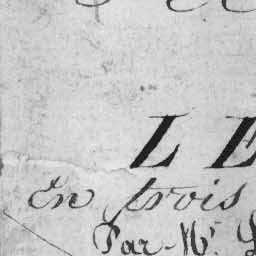 LE
En trois
Par Mr.